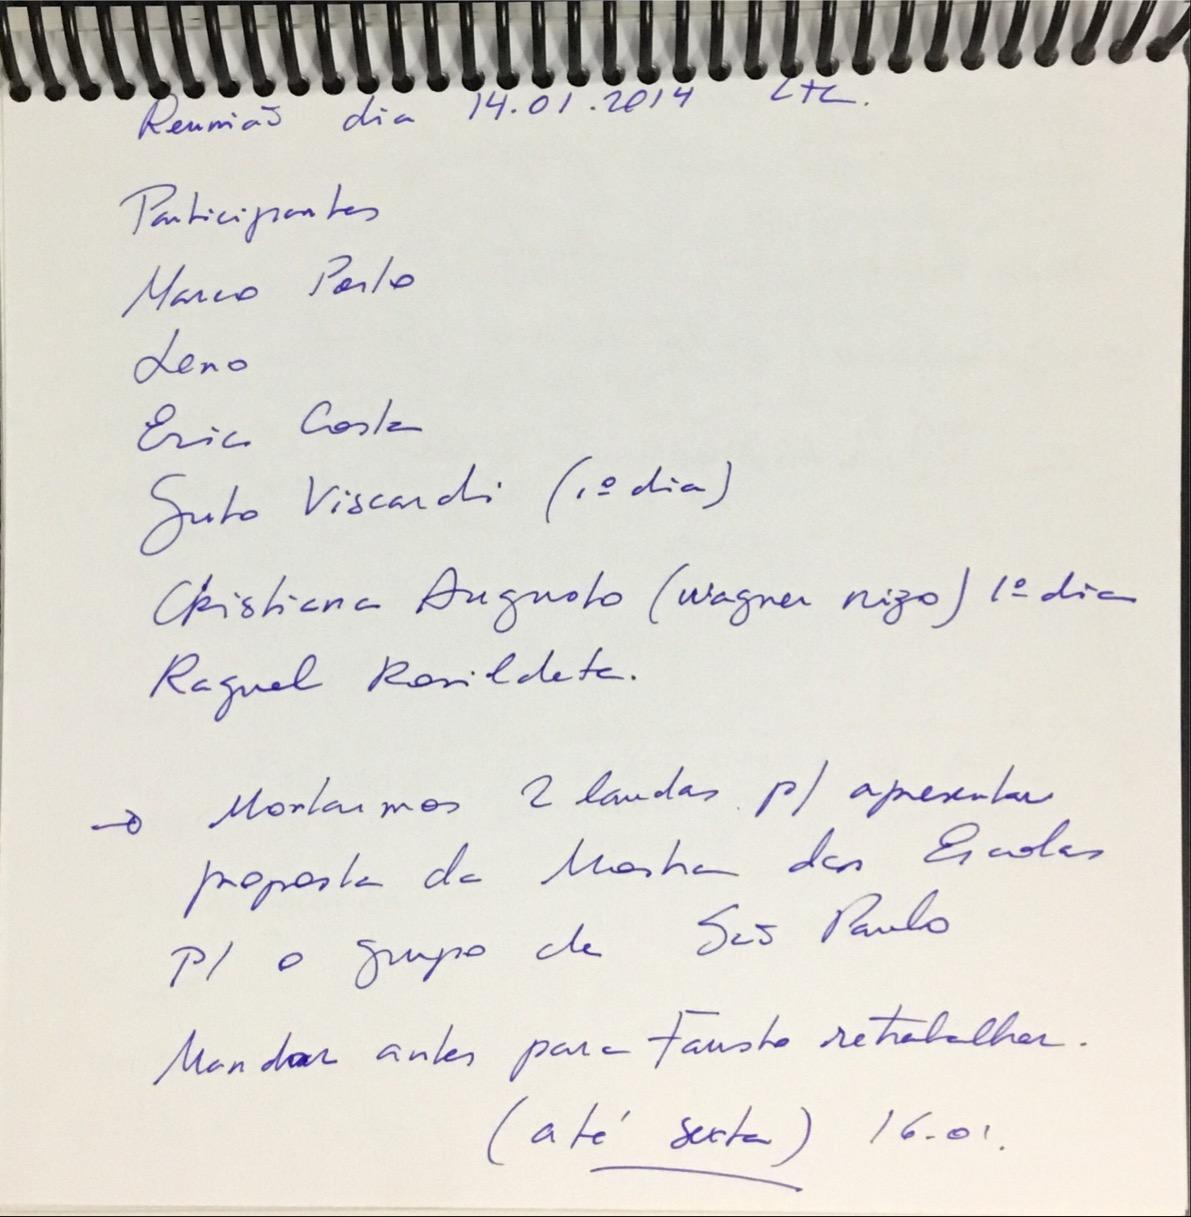 Reunião dia 14.01.2014 LTL.
Participantes
Marco
Leno
Erica Costa
Guto Viscardi (1º dia)
Cristiana Augusto (Wagner nizo) 1º dia
Raquel
→ Montarmos 2 laudas p/ apresentar
proposta da Mostra das Escolas
p/ o grupo de São Paulo
Mandar antes para Fausto retrabalhar.
(até sexta) 16.01.